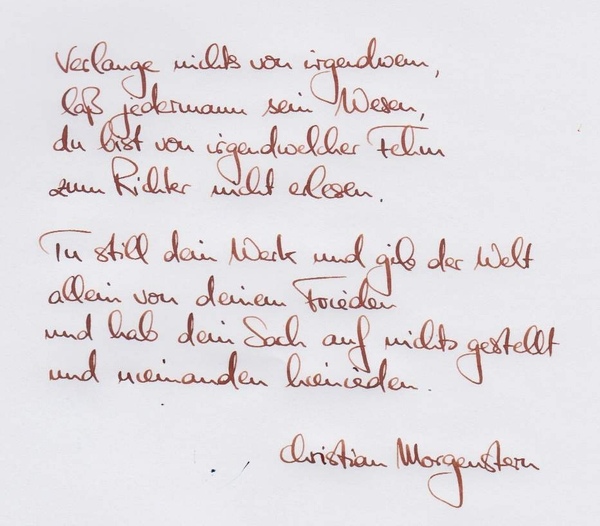 Verlange nichts von irgendwem,
laß jedermann sein Wesen,
du bist von irgendwelcher Fehm
zum Richter nicht erlesen.
Tu still dein Werk und gib der Welt
allein von deinem Frieden
und hab dein Sach auf nichts gestellt
und niemanden hienieden.
Christian Morgenstern